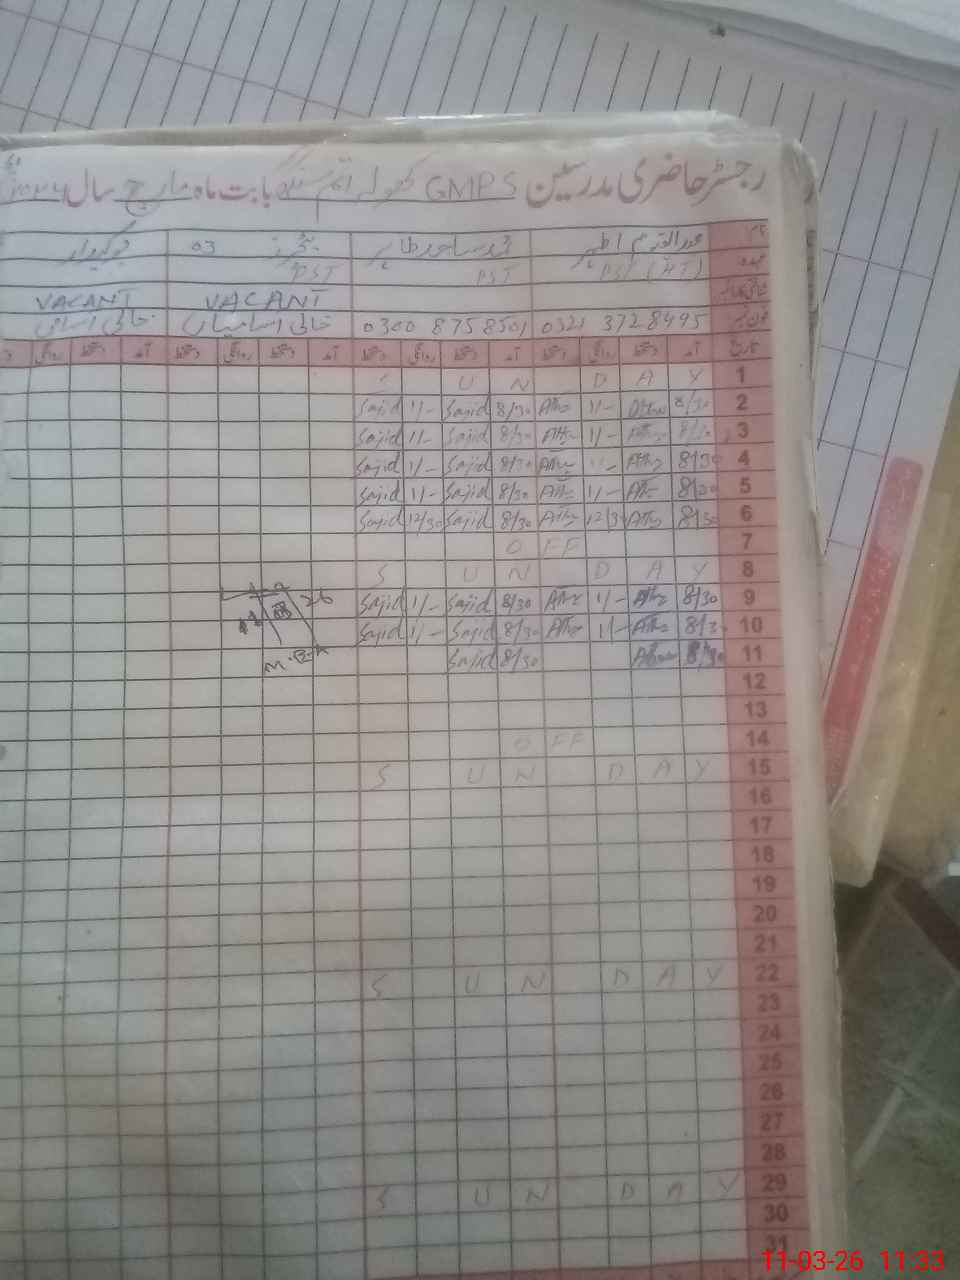 رجسٹر حاضری مدرسین GMPS بابت ماہ مارچ سال
نام عبدالقیوم اطہر محمد ساجد طاہر ٹیچرز 03 چوکیدار
عہدہ PST (HT) PST PST
VACANT VACANT
فون نمبر 0321 3728495 0300 8758501 خالی اسامیاں خالی اسامی
تاریخ آمد دستخط روانگی دستخط آمد دستخط روانگی دستخط آمد دستخط روانگی دستخط آمد دستخط روانگی
S U N D A Y 1
Sajid 1/- Sajid 8/30 1/- 8/30 2
Sajid 1/- Sajid 8/30 1/- 8/30 3
Sajid 1/- Sajid 8/30 8/30 4
Sajid 1/- Sajid 8/30 1/- 8/30 5
Sajid 12/30 Sajid 8/30 12/30 8/30 6
OFF 7
S U N D A Y 8
Sajid 1/- Sajid 8/30 1/- 8/30 9
26
Sajid 1/- Sajid 8/30 1/- 8/30 10
Sajid 8/30 8/30 11
12
13
OFF 14
S U N D A Y 15
16
17
18
19
20
21
S U N D A Y 22
23
24
25
26
27
28
S U N D A Y 29
30
31
11-03-26 11:33